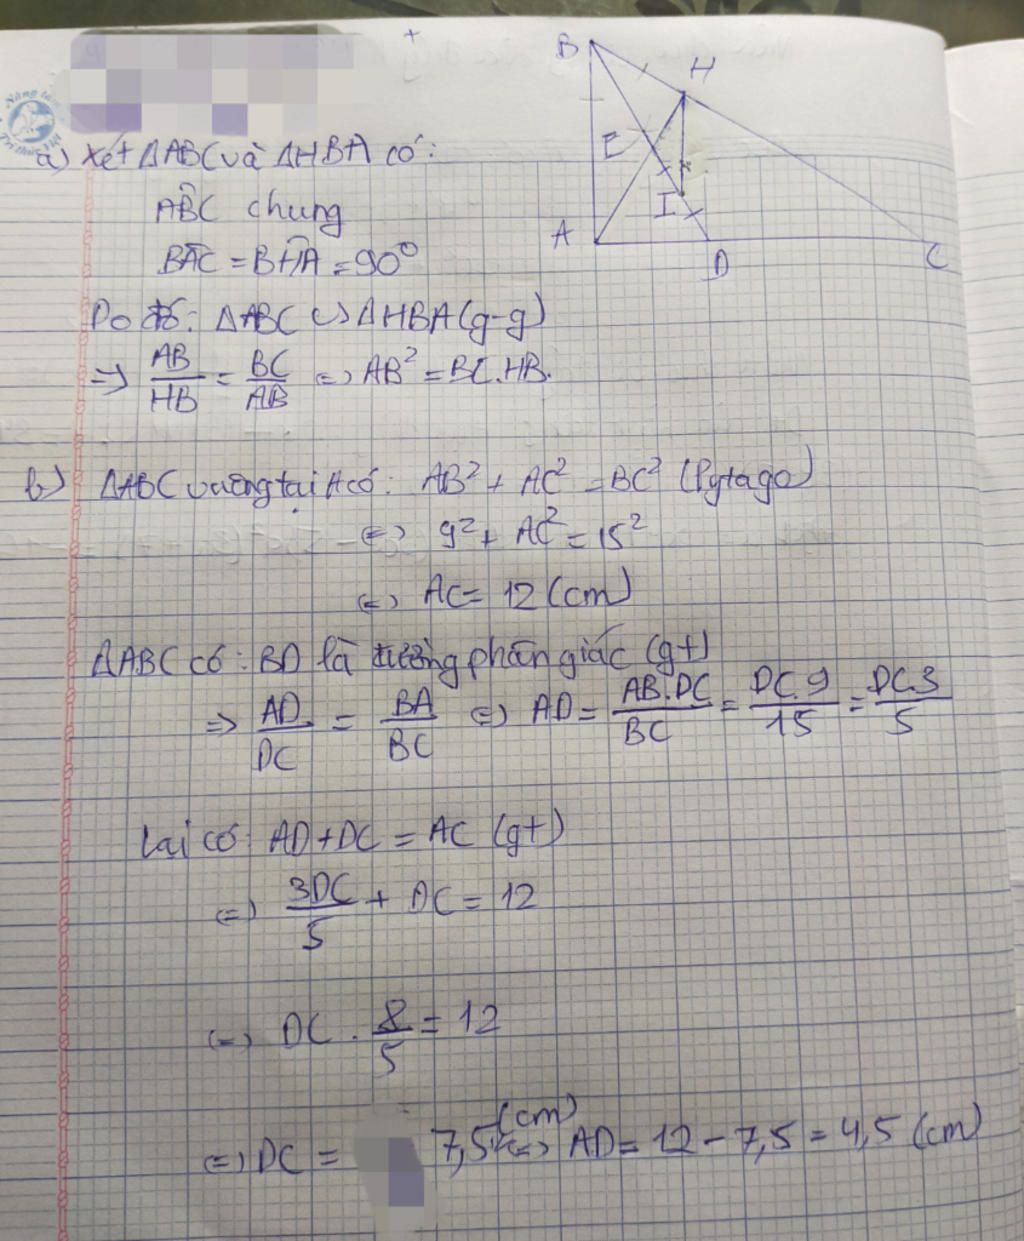 B
H
E
I
A
D
C
a) Xét ΔABC và ΔHBA có:
ABC chung
BAC = BHA = 90°
Do đó: ΔABC ∽ ΔHBA (g-g)
=> AB/HB = BC/AB <=> AB² = BC.HB.
b) ΔABC vuông tại A có: AB² + AC² = BC² (Pytago)
<=> 9² + AC² = 15²
<=> AC = 12 (cm)
ΔABC có: BD là đường phân giác (gt)
=> AD/DC = BA/BC <=> AD = AB.DC/BC = DC.9/15 = DC.3/5
Lại có: AD + DC = AC (gt)
<=> 3DC/5 + DC = 12
<=> DC . 8/5 = 12
<=> DC = 7,5 (cm) <=> AD = 12 - 7,5 = 4,5 (cm)